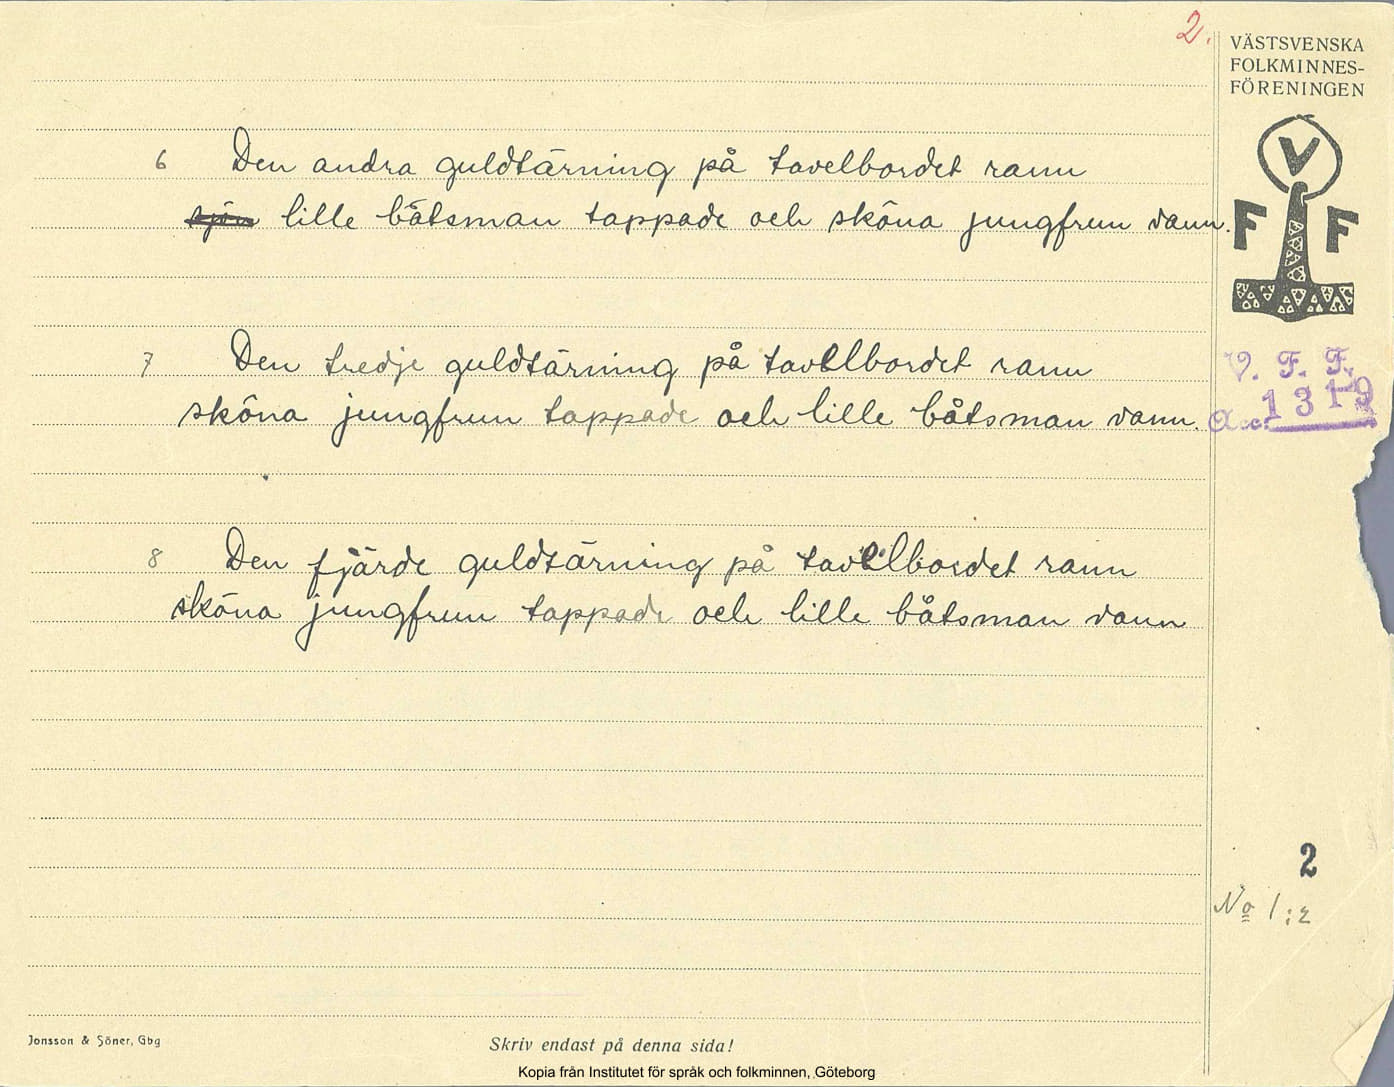 2.
VÄSTSVENSKA
FOLKMINNES-
FÖRENINGEN
V
F F
6 Den andra guldtärning på tavelbordet rann
sjön lille båtsman tappade och sköna jungfrun vann.
7 Den tredje guldtärning på tavelbordet rann
sköna jungfrun tappade och lille båtsman vann.
V. F. F.
Acc. 1319
8 Den fjärde guldtärning på tavelbordet rann
sköna jungfrun tappade och lille båtsman vann
2
No 1:2
Jonsson & Söner, Gbg
Skriv endast på denna sida!
Kopia från Institutet för språk och folkminnen, Göteborg